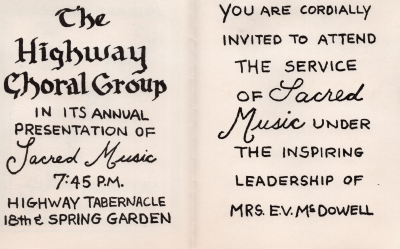 The
Highway
Choral Group
IN ITS ANNUAL
PRESENTATION OF
Sacred Music
7:45 P.M.
HIGHWAY TABERNACLE
18th & SPRING GARDEN
YOU ARE CORDIALLY
INVITED TO ATTEND
THE SERVICE
OF Sacred
Music UNDER
THE INSPIRING
LEADERSHIP OF
MRS. E.V. McDOWELL